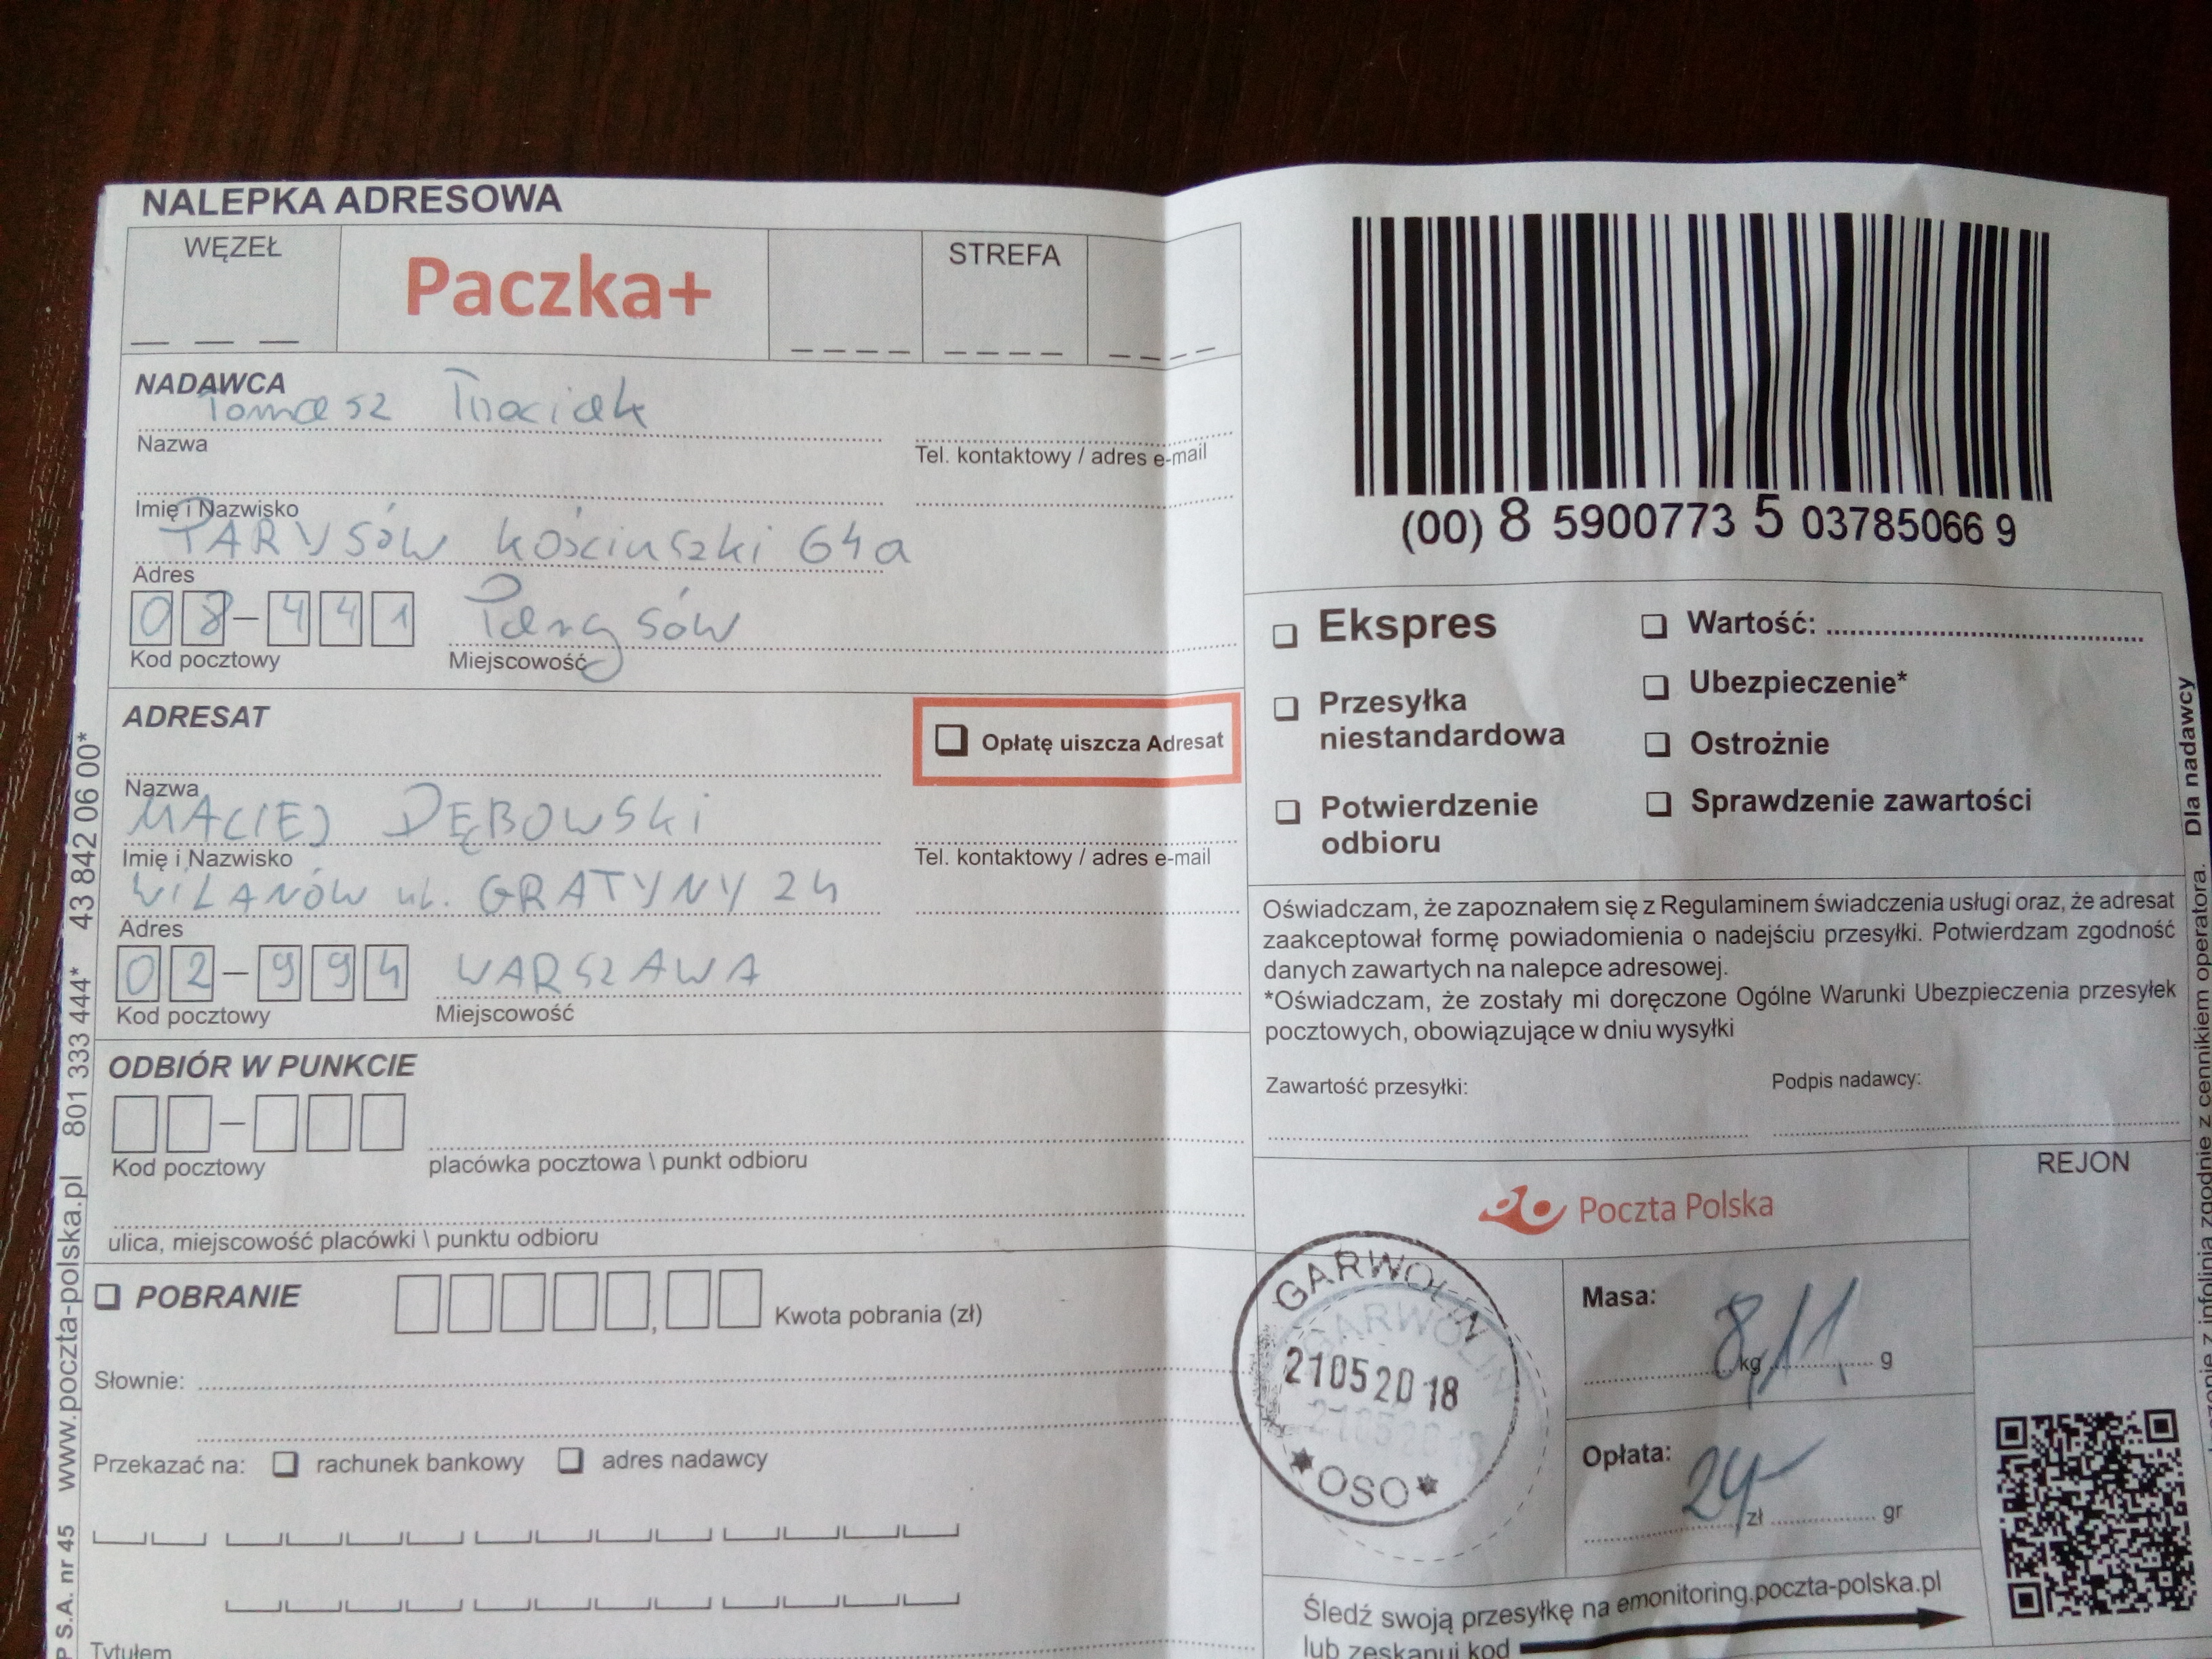 NALEPKA ADRESOWA
WĘZEŁ
Paczka+
STREFA
NADAWCA
Tomasz
Nazwa
Tel. kontaktowy / adres e-mail
Imię i Nazwisko
PARYSÓW Kościuszki 64a
Adres
08-441 Parysów
Kod pocztowy
Miejscowość
ADRESAT
Opłatę uiszcza Adresat
Nazwa
MACIEJ DĘBOWSKI
Imię i Nazwisko
Tel. kontaktowy / adres e-mail
WILANÓW ul. GRATYNY 24
Adres
02-994 WARSZAWA
Kod pocztowy
Miejscowość
ODBIÓR W PUNKCIE
Kod pocztowy
placówka pocztowa \ punkt odbioru
ulica, miejscowość placówki \ punktu odbioru
POBRANIE
Kwota pobrania (zł)
Słownie:
Przekazać na: rachunek bankowy adres nadawcy
Tytułem
P S.A. nr 45 www.poczta-polska.pl 801 333 444* 43 842 06 00*
(00) 8 5900773 5 03785066 9
Ekspres
Wartość:
Ubezpieczenie*
Przesyłka
niestandardowa
Ostrożnie
Potwierdzenie
odbioru
Sprawdzenie zawartości
Oświadczam, że zapoznałem się z Regulaminem świadczenia usługi oraz, że adresat
zaakceptował formę powiadomienia o nadejściu przesyłki. Potwierdzam zgodność
danych zawartych na nalepce adresowej.
*Oświadczam, że zostały mi doręczone Ogólne Warunki Ubezpieczenia przesyłek
pocztowych, obowiązujące w dniu wysyłki
Zawartość przesyłki:
Podpis nadawcy:
Poczta Polska
REJON
GARWOLIN
21052018
*OSO*
Masa:
8,11
kg g
Opłata:
24-
zł gr
Śledź swoją przesyłkę na emonitoring.poczta-polska.pl
lub zeskanuj kod
z infolinią zgodnie z cennikiem operatora. Dla nadawcy